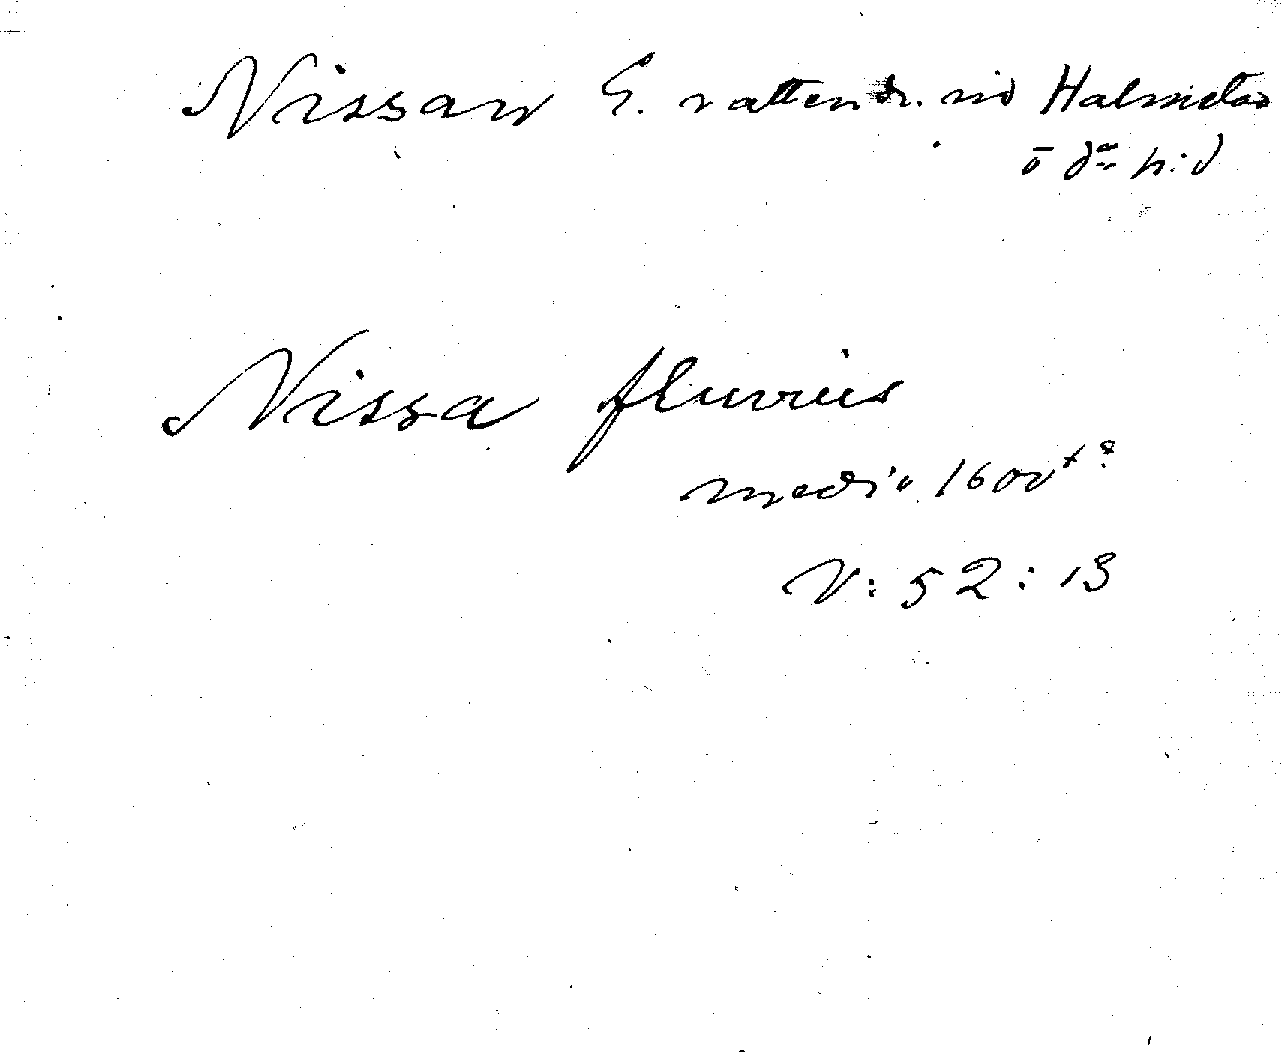 Nissan G. vattendr. vid Halmstad
Nissa fluvius
medio 1600t?
N: 52: 13